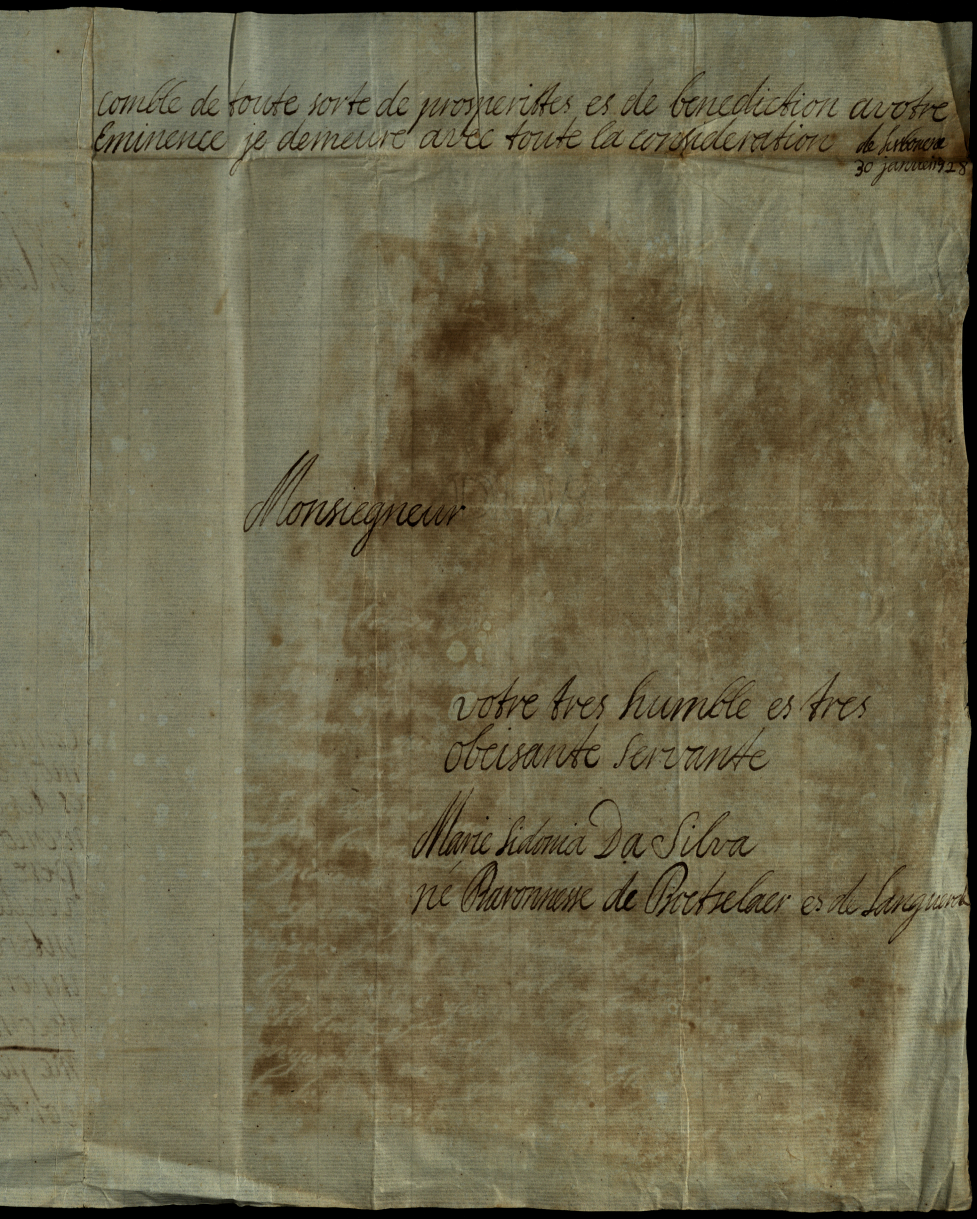 comble de toute sorte de prosperistes es de benediction avotre
Eminence je demeure avec toute la consideration de
30 janvei
Monsiegneur
votre tres humble es tres
obeisante servante
Marie Sidonia Da Silva
né Baronnesse de Boetselaer es de